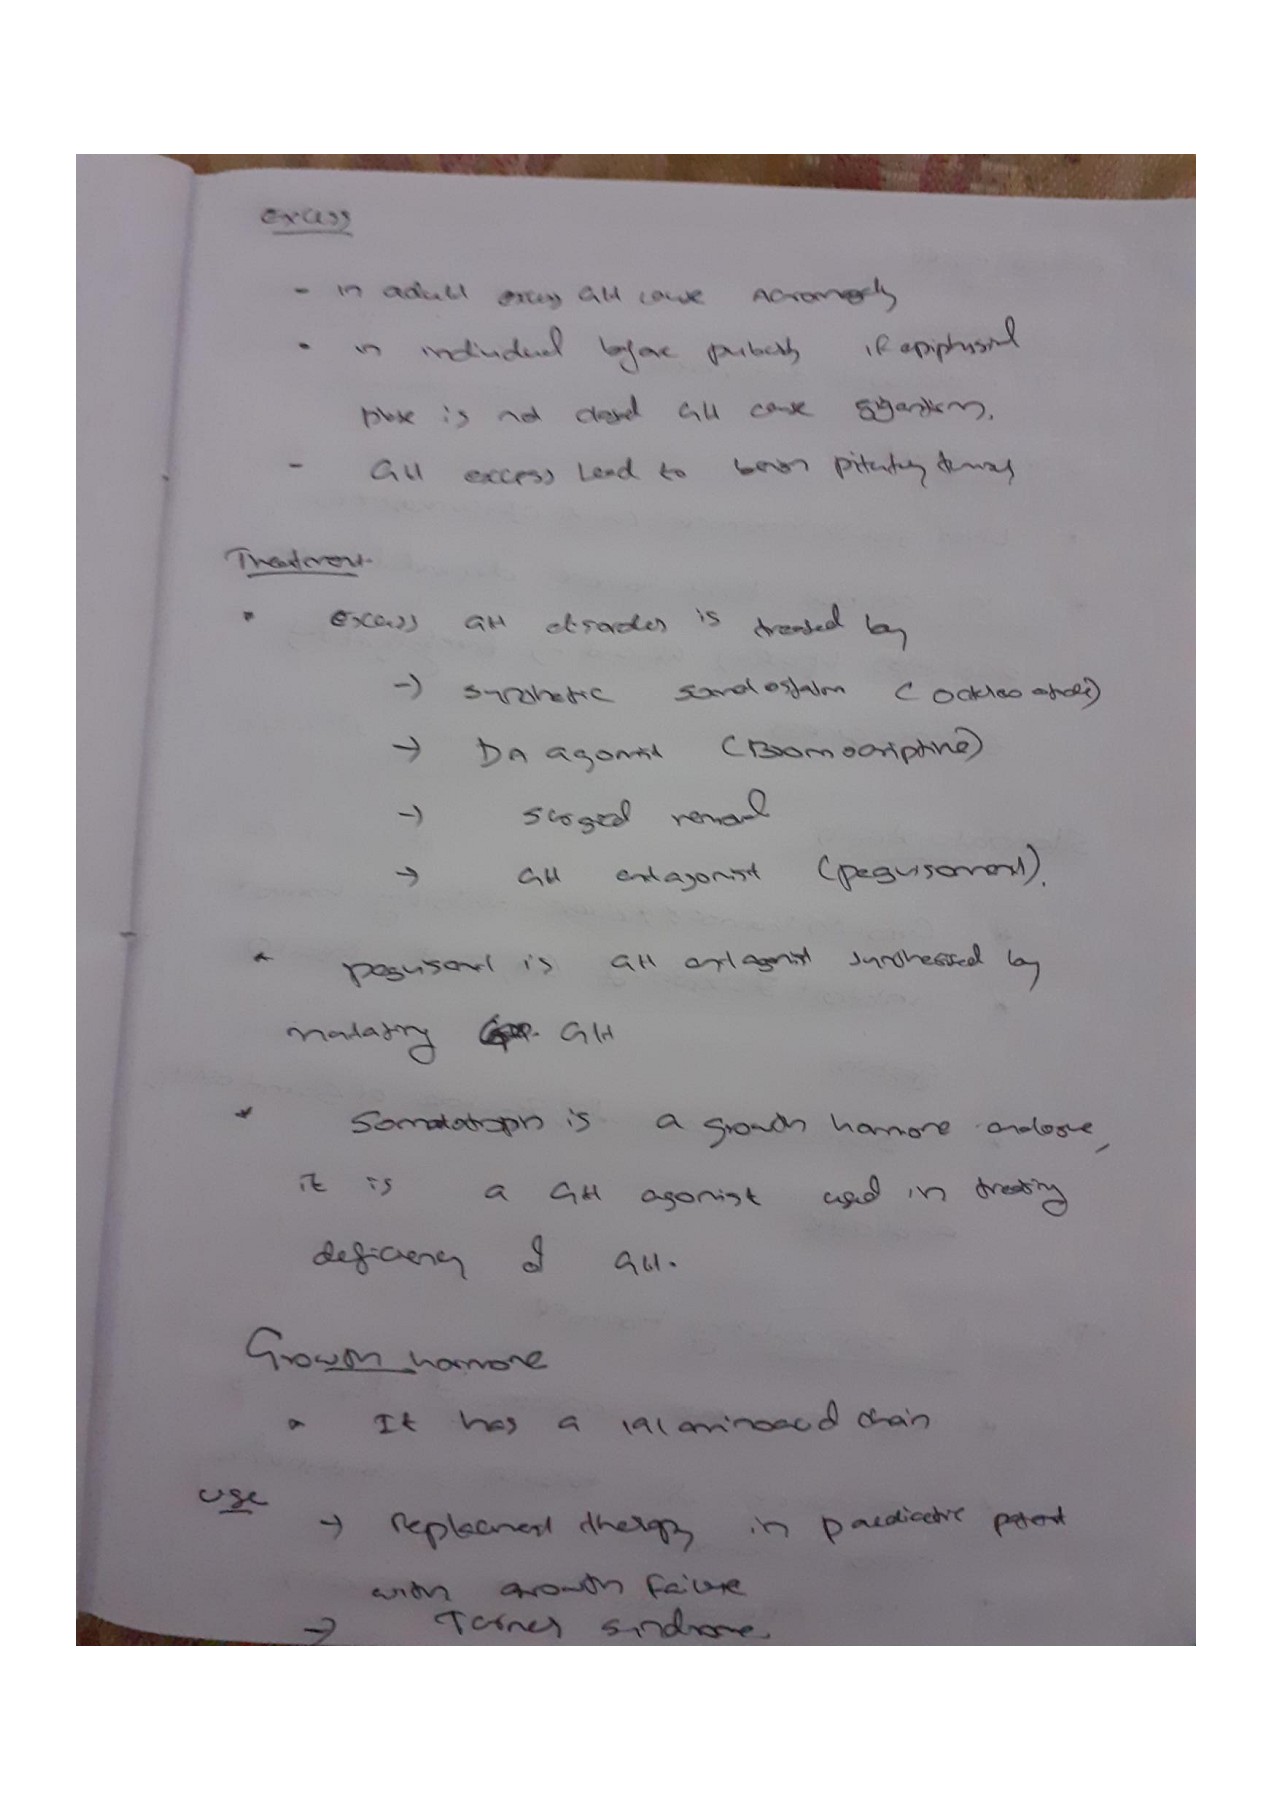 Excess
- in adult excess GH cause Acromegaly
• in individual before puberty if epiphysial
plate is not closed GH cause gigantism.
- GH excess Lead to benign pituitary tumors
Treatment
• Excess GH disorder is treated by
→ synthetic (octreotide)
→ DA agonist (Bromocriptine)
→ removal
→ GH antagonist (pegvisomant).
* pegvisomant is GH antagonist synthesised by
GH
* Somatotropin is a growth hormone analogue,
it is a GH agonist used in treating
deficiency of GH.
Growth hormone
• It has a 191 aminoacid chain
Use
→ Replacement therapy in paediatric patient
with growth failure
→ Turner sindrome.